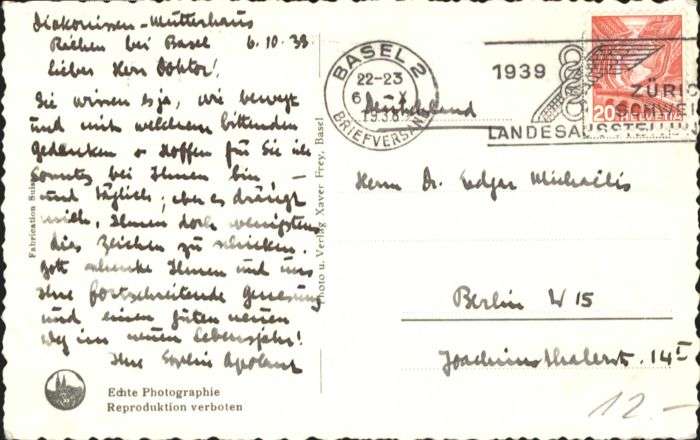 Diakonissen-Mutterhaus
Riehen bei Basel 6.10.38
Lieber Herr Doktor!
Sie wissen es ja, wie bewegt
und mit welchem bittenden
Gedanken u. Hoffen für Sie ich
Sonntags bei Ihnen bin, –
und täglich; aber es drängt
mich, Ihnen doch wenigstens
dies Zeichen zu schicken.
Gott schenke Ihnen und uns
Ihre fortschreitende Genesung
und einen guten neuen
Weg im neuen Lebensjahr!
Ihre Apolant
Echte Photographie
Reproduktion verboten
Fabrication Suisse
Photo u. Verlag Xaver Frey, Basel
BASEL 2
22-23
6 X
1938
BRIEFVERSAND
1939
ZÜRI
SCHWEI
LANDESAUSSTELLUN
20
Deutschland
Herrn Dr. Edgar Michaëlis
Berlin W 15
Joachimsthalerstr. 14 I
12.-